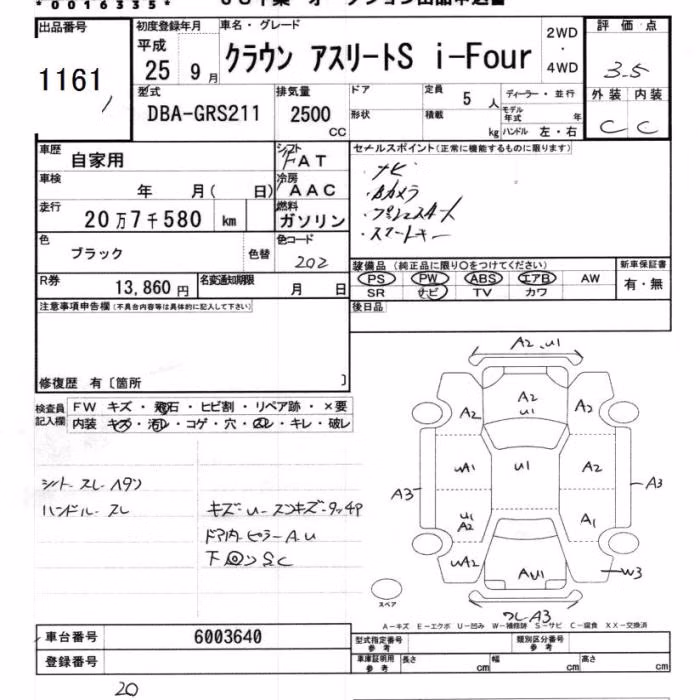 *0016335*
出品番号
1161
初度登録年月
平成
25 9月
車名・グレード
クラウン アスリートS i-Four
2WD
・
4WD
評価点
3.5
外装 内装
C C
型式
DBA-GRS211
排気量
2500
CC
ドア
形状
定員
5人
積載
kg
ディーラー・並行
モデル年式 年
ハンドル 左・右
車歴
自家用
シフト
FAT
車検
年 月( 日)
冷房
AAC
走行
20万7千580 km
燃料
ガソリン
色
ブラック
色替
色コード
202
R券
13,860円
名変通知期限
月 日
セールスポイント(正常に機能するものに限ります)
・ナビ
・Bカメラ
・スマートキー
装備品(純正品に限り○をつけてください)
PS PW ABS エアB AW
SR ナビ TV カワ
新車保証書
有・無
後日品
注意事項申告欄(不具合内容等は具体的に記入して下さい)
修復歴 有〔箇所 〕
検査員記入欄
FW キズ・飛石・ヒビ割・リペア跡・×要
内装 キズ・汚レ・コゲ・穴・スレ・キレ・破レ
シート スレ ヘタリ
ハンドル スレ
ドア内ピラーA.U
A2.U1
A2
U1
A2
A2
UA1
U1
A2
A3
A3
U1
A2
A1
UA2
AU1
W3
スペア
A3
A-キズ E-エクボ U-凹み W-補修跡 S-サビ C-腐食 XX-交換済
車台番号
6003640
登録番号
型式指定番号
参考
類別区分番号
参考
車庫証明用
参考
長さ cm
幅 cm
高さ cm
20